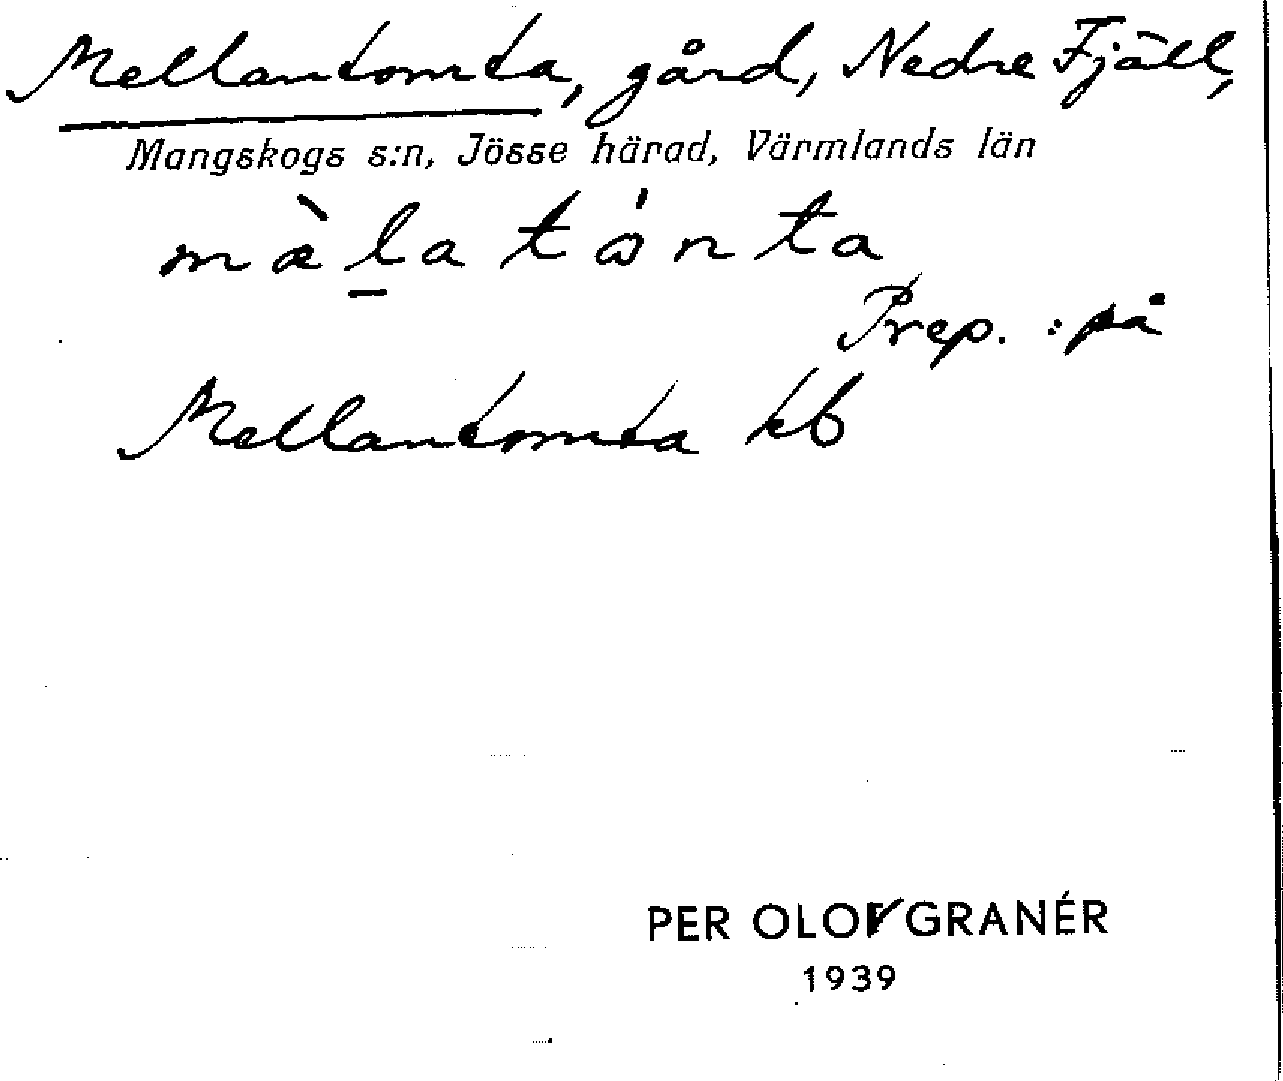 Mellantomta, gård, Nedre Fjäll,
Mangskogs s:n, Jösse härad, Värmlands län
mæ̀l̠a tónta
Prep. : på
Mellantomta kb
PER OLOV GRANÉR
1939